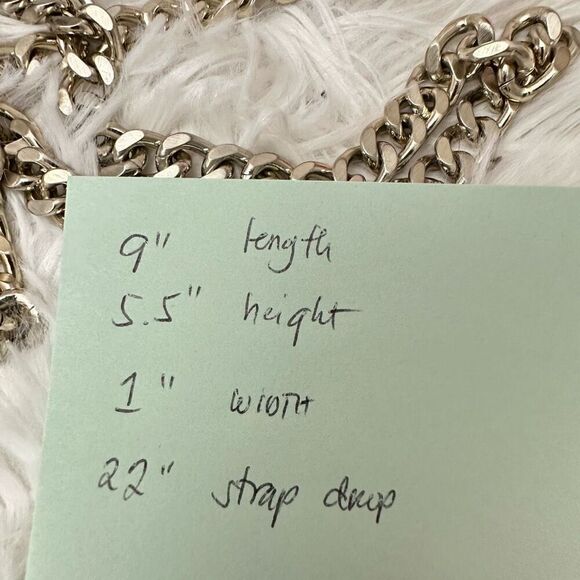 9" length
5.5" height
1" WIDTH
22" strap drop